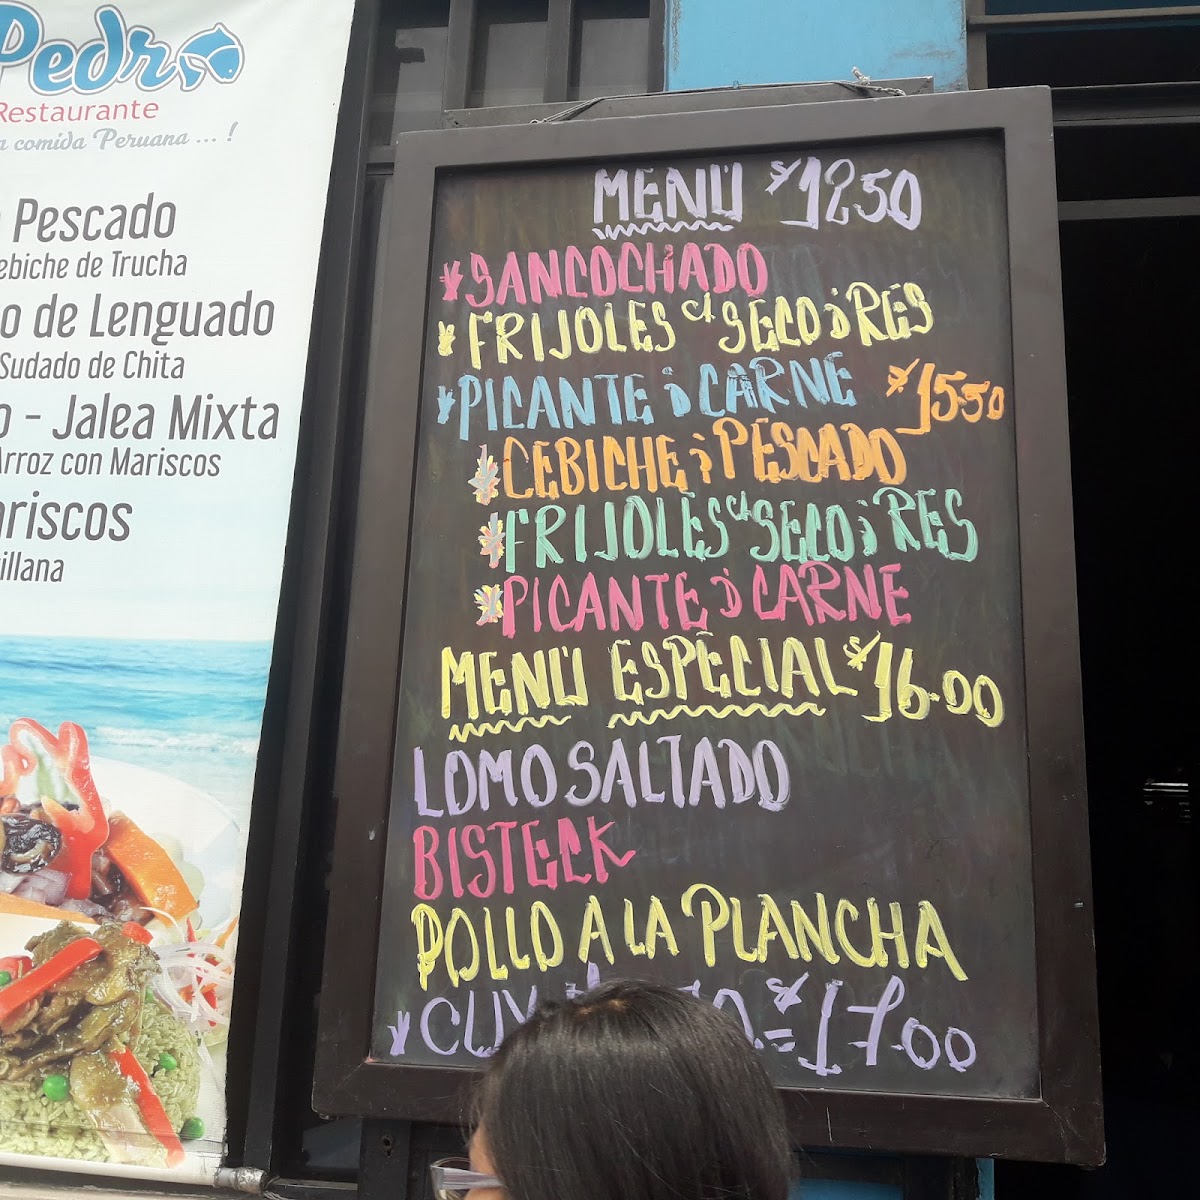 Pedro
Restaurante
comida Peruana ... !
Pescado
ebiche de Trucha
o de Lenguado
Sudado de Chita
o - Jalea Mixta
Arroz con Mariscos
ariscos
illana
MENÚ S/12.50
*SANCOCHADO
*FRIJOLES c/ SECO d RES
*PICANTE d CARNE S/15.50
*CEBICHE d PESCADO
*FRIJOLES c/ SECO d RES
*PICANTE d CARNE
MENÚ ESPECIAL S/16.00
LOMO SALTADO
BISTECK
POLLO A LA PLANCHA
*CUY S/17.00